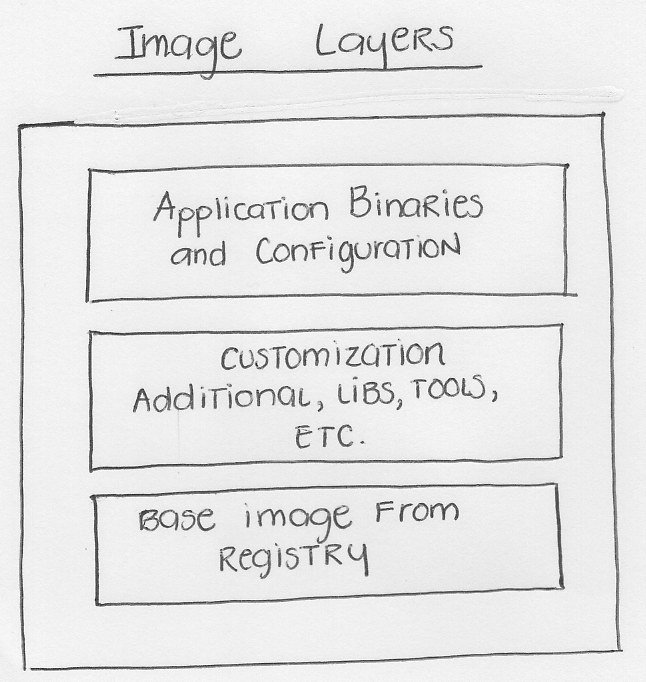 Image Layers
Application Binaries
and Configuration
Customization
Additional, Libs, Tools,
Etc.
Base image From
Registry